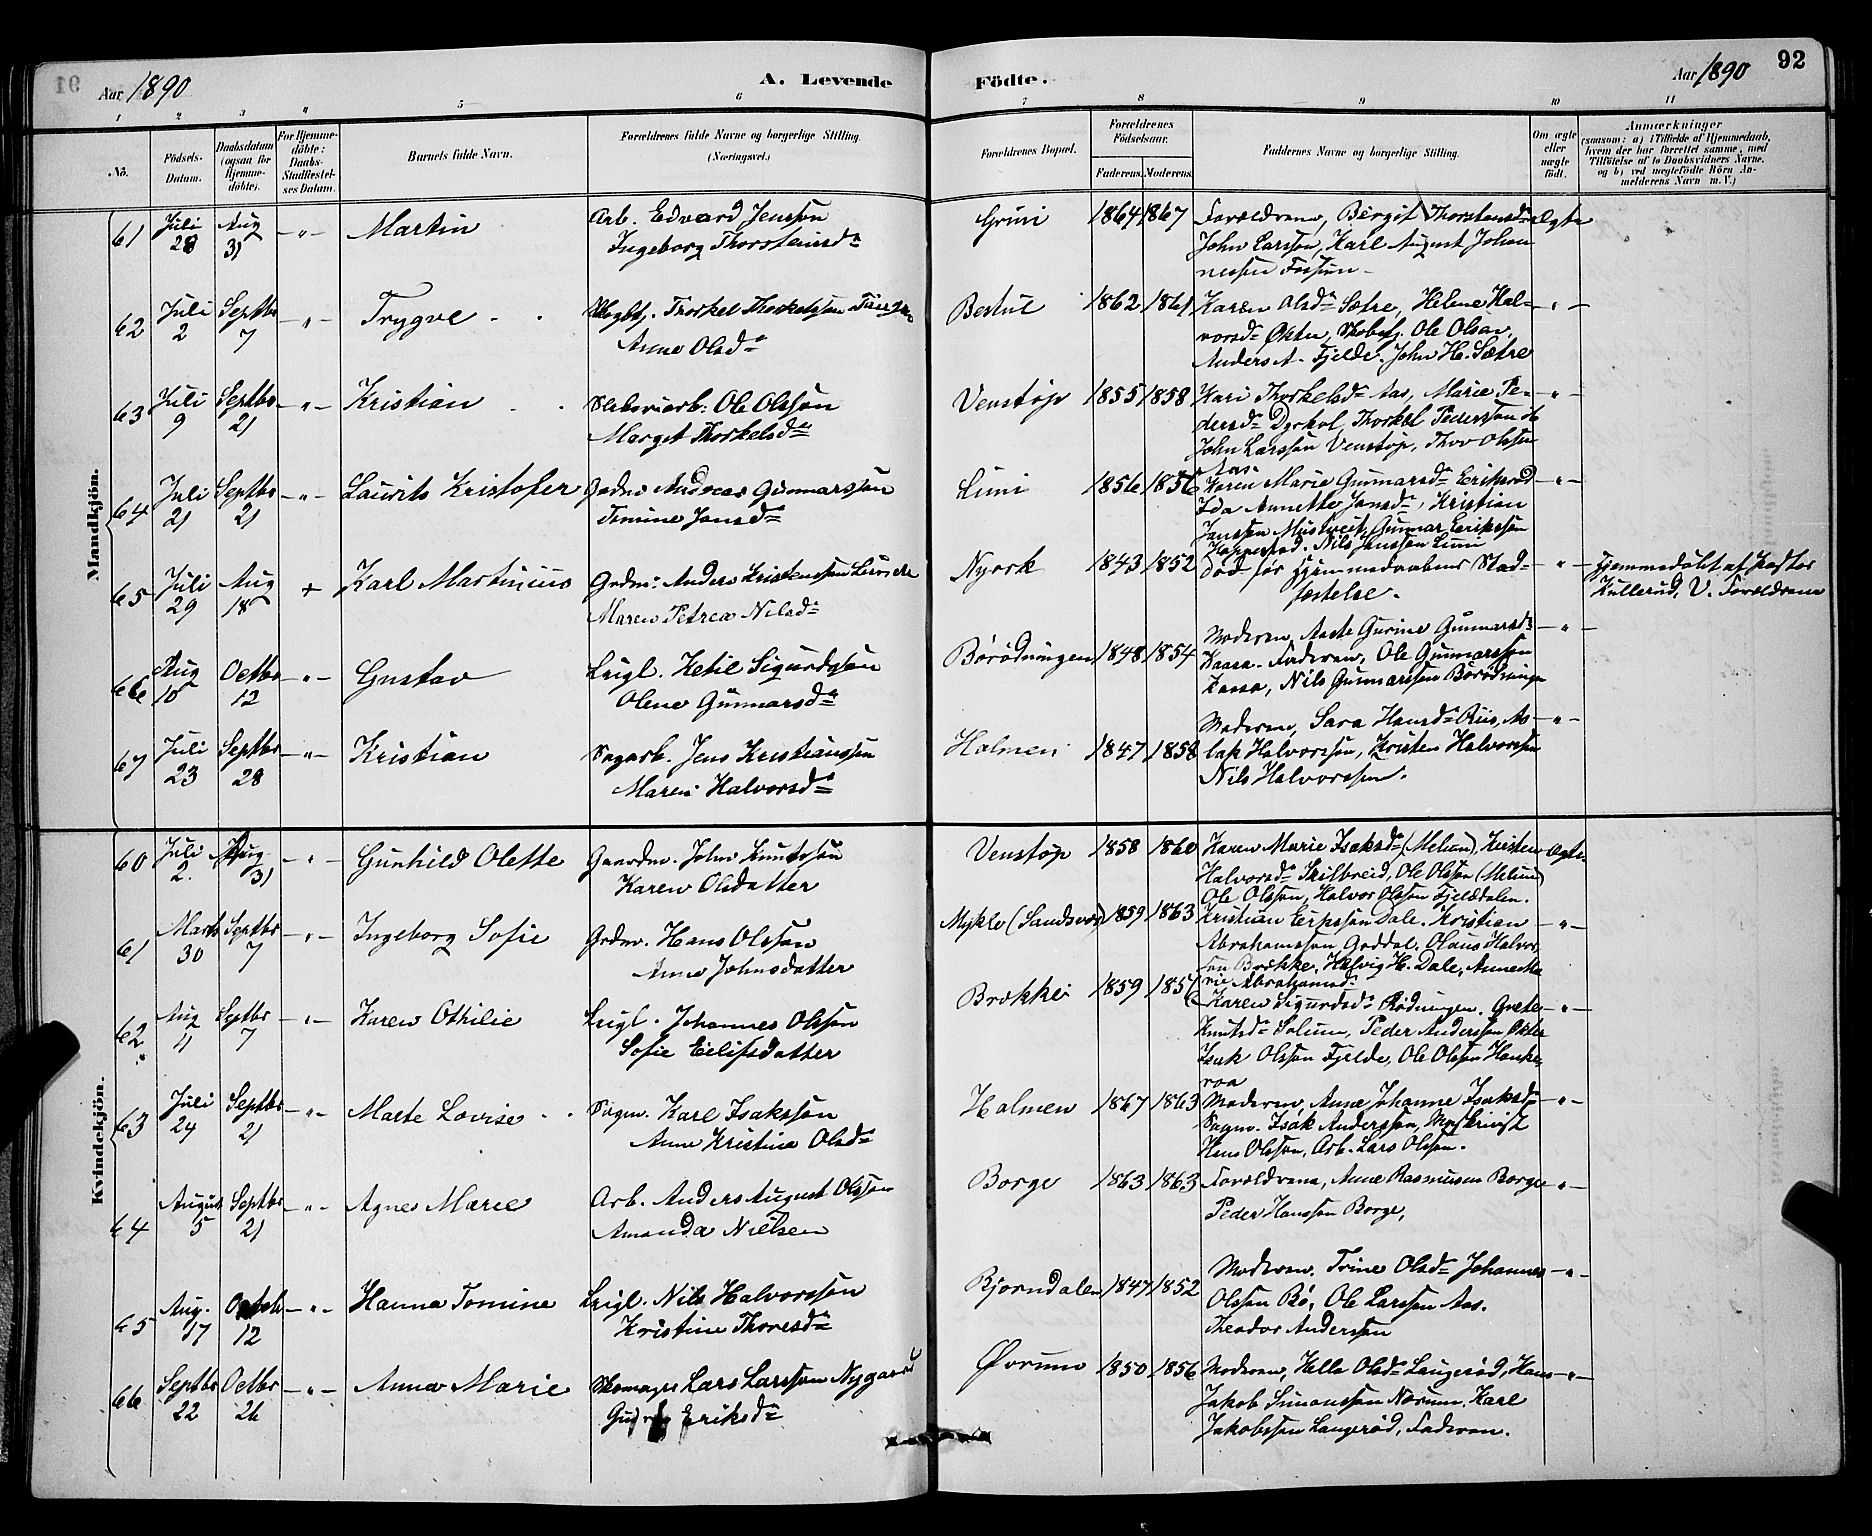 Aar 1890
A. Levende
Födte.
Aar 1890
92
1 2 3 4 5 6 7 8 9 10 11
No.
Födsels-Datum.
Daabsdatum (ogsaa för Hjemme-döbte).
For Hjemme-döbte: Daabs-Stadfæstel-ses Datum.
Barnets fulde Navn.
Forældrenes fulde Navne og borgerlige Stilling. (Næringsvei.)
Forældrenes Bopæl.
Forældrenes Födselsaar.
Faderens. Moderens.
Faddernes Navne og borgerlige Stilling.
Om ægte eller uægte födt.
Anmærkninger
(saasom: a) i Tilfælde af Hjemmedaab, hvem der har forrettet samme, med Tilföielse af to Daabsvidners Navne. og b) ved uægtefödte Börn Anmelderens Navn m. V.)
Mandkjön.
61 Juli 28 Aug 31 -"- Martin
Arb. Edvard Jensson
Ingeborg Thorsteinsd.
Gruni 1864 1867
Forældrene, Birgit Thorstensd. Ægte
John Larssön, Karl August Johan
nessen Fossum
62 Juli 2 Septbr 7 -"- Trygve
Thorkel Thorkelsson
Anne Olsd.
Bestul 1862 1861
Karen Olsd. Sætre, Helene Hal- -"-
vorsd. Økter, Ole Olsen,
Anders A. Fjelde. John H. Sætre
63 Juli 9 Septbr 21 -"- Kristian
Ole Olssön
Marget Thorkelsd.
Venstøp 1855 1858
Kari Thorkelsd. Aas, Marie Pe- -"-
dersd. Dyrkol, Thorkel Pederssön
John Larssön Venstøp, Thov Olssen
Aas.
64 Juli 21 Septbr 21 -"- Laurits Kristofer
Andreas Gunnarssön
Tomine Jansd.
Limi 1856 1856
Karen Marie Gunnarsd. Eriksrød -"-
Ida Annette Jansd., Kristian
Janssen Gunnar Erikssön
Nils Janssön Limi
65 Juli 29 Aug 18 + Karl Martinius
Grdm. Anders Kristenssen
Maren Petrea Nilsd.
Nyork 1843 1852
Død før Hjemmedaabens Stad- -"-
fæstelse.
Hjemmedøbt af Pastor
Kullerud, V. Forældrene
66 Aug 10 Octbr 12 -"- Gustav
Leigl. Ketil Sigurdssön
Olene Gunnarsd.
Børødningen 1848 1854
Moderen, Aaste Gurine Gunnarsd. -"-
Kaasa. Faderen, Ole Gunnarssön
Kaasa, Nils Gunnarssen Børødningen
67 Juli 23 Septbr 28 -"- Kristian
Sagarb. Jens Kristianssen
Maren Halvorsd.
Holmen 1847 1858
Moderen, Sara Hansd. Riis, As- -"-
lak Halvorssön, Kristen Halvorssen
Nils Halvorssen.
Kvindekjön.
60 Juli 2. Aug 31 -"- Gunhild Olette
Gaardm. John Knutssön
Karen Olsdatter
Venstøp 1858 1860
Karen Marie Isaksd. (Melum), Kirsten Ægte
Halvorsd. Skilbreid, Ole Olssen (Melum)
Ole Olssön, Halvor Olssen Fjelddalen.
61 Marts 30 Septbr 7 -"- Ingeborg Sofie
Grdm. Hans Olssön
Anne Johnsdatter
Mykle (Sandsvær) 1859 1863
Kristian Erikssön Dale. Kristian -"-
Abrahamssön Goddal. Olaus Halvor
sen Brække, Helvig H. Dale, Anne Ma
rie Abrahamsd.
62 Aug 11 Septbr 7 -"- Karen Othilie
Leigl. Johannes Olssen
Sofie Eilifsdatter
Brække 1859 1857
Karen Sigurdsd. Rødningen. Grete -"-
Knutsd. Solum, Peder Anderssen Økter
Isak Olssen Fjelde, Ole Olssen Hauke
roa
63 Juli 24 Septbr 21 -"- Marte Lovise
Sagm. Karl Isakssön
Anne Kristine Olsd.
Holmen 1867 1863
Moderen, Anne Johanne Isaksd. -"-
Sagm. Isak Anderssön,
Hans Olssön, Arb. Lars Olssen.
64 August 5 Septbr 21 -"- Agnes Marie
Arb. Anders August Olssen
Amanda Nielsen
Borge 1863 1863
Forældrene, Anne Rasmussen Borge -"-
Peder Hanssön Borge,
65 Aug. 17 Octob 12 -"- Hanna Tomine
Leigl. Nils Halvorssön
Kristine Thoresd.
Bjorndalen 1847 1852
Moderen. Trine Olsd. Johannes -"-
Olssön Bø, Ole Larssen Aas.
Theodor Anderssen
66 Septbr 22 Octbr 26 -"- Anna Marie
Skomager Lars Larssen Nygaard
Eriksd.
Ørum 1850 1856
Moderen, Helle Olsd. Langerød, Hans -"-
Jakob Simonssen Nærum. Karl
Jakobssen Langerød, Faderen.